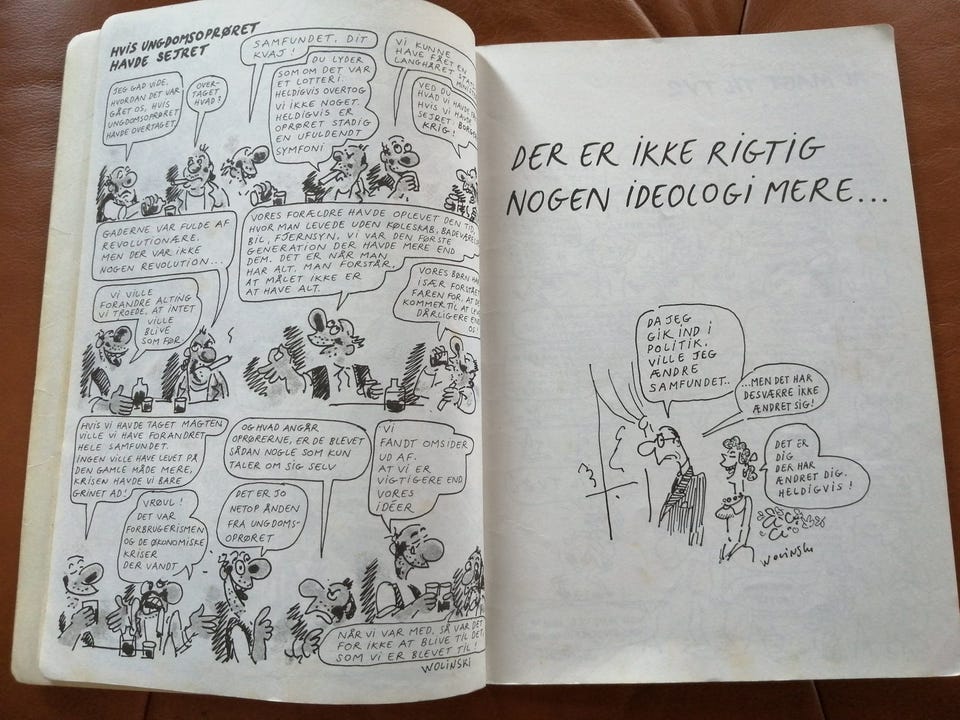 HVIS UNGDOMSOPRØRET
HAVDE SEJRET
JEG GAD VIDE,
HVORDAN DET VAR
GÅET OS, HVIS
UNGDOMSOPRØRET
HAVDE OVERTAGET
OVER-
TAGET
HVAD?
SAMFUNDET, DIT
KVAJ!
DU LYDER
SOM OM DET VAR
ET LOTTERI.
HELDIGVIS OVERTOG
VI IKKE NOGET.
HELDIGVIS ER
OPRØRET STADIG
EN UFULDENDT
SYMFONI
VI KUNNE
HAVE FÅET EN
LANGHÅRET
VED DU
HVAD VI HAVDE
HVIS VI HAVDE
SEJRET. BORGER-
KRIG!
GADERNE VAR FULDE AF
REVOLUTIONÆRE.
MEN DER VAR IKKE
NOGEN REVOLUTION...
VI VILLE
FORANDRE ALTING
VI TROEDE, AT INTET
VILLE
BLIVE
SOM FØR
VORES FORÆLDRE HAVDE OPLEVET DEN TID,
HVOR MAN LEVEDE UDEN KØLESKAB, BADEVÆRELSE,
BIL, FJERNSYN. VI VAR DEN FØRSTE
GENERATION DER HAVDE MERE END
DEM. DET ER NÅR MAN
HAR ALT, MAN FORSTÅR,
AT MÅLET IKKE ER
AT HAVE ALT.
VORES BØRN HAR
ISÆR FORSTÅET
FAREN FOR, AT DE
KOMMER TIL AT LEVE
DÅRLIGERE END
OS!
HVIS VI HAVDE TAGET MAGTEN
VILLE VI HAVE FORANDRET
HELE SAMFUNDET.
INGEN VILLE HAVE LEVET PÅ
DEN GAMLE MÅDE MERE,
KRISEN HAVDE VI BARE
GRINET AD!
VRØVL!
DET VAR
FORBRUGERISMEN
OG DE ØKONOMISKE
KRISER
DER VANDT
OG HVAD ANGÅR
OPRØRERNE, ER DE BLEVET
SÅDAN NOGLE SOM KUN
TALER OM SIG SELV
DET ER JO
NETOP ÅNDEN
FRA UNGDOMS-
OPRØRET
VI
FANDT OMSIDER
UD AF,
AT VI ER
VIGTIGERE END
VORES
IDÉER
NÅR VI VAR MED, SÅ VAR DET
FOR IKKE AT BLIVE TIL DET,
SOM VI ER BLEVET TIL!
WOLINSKI
DER ER IKKE RIGTIG
NOGEN IDEOLOGI MERE...
DA JEG
GIK IND I
POLITIK,
VILLE JEG
ÆNDRE
SAMFUNDET..
...MEN DET HAR
DESVÆRRE IKKE
ÆNDRET SIG!
DET ER
DIG
DER HAR
ÆNDRET DIG.
HELDIGVIS!
WOLINSKI